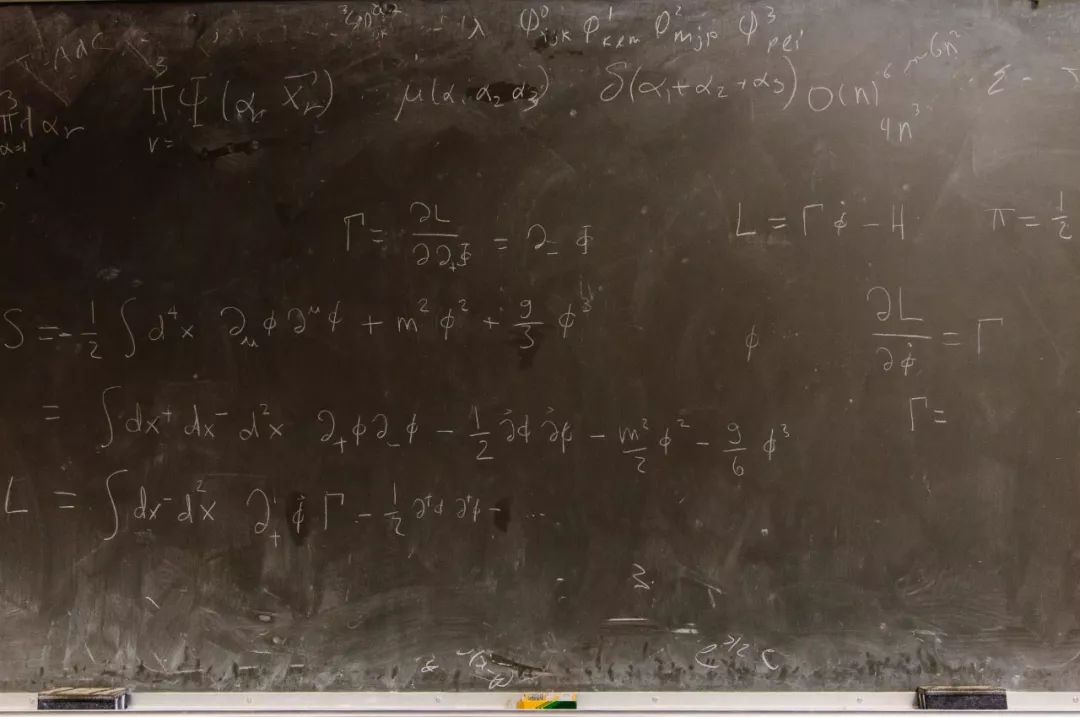 λ φ⁰ᵢⱼₖ φ¹ₖₗₘ φ²ₘⱼₚ φ³ₚₗᵢ
³π dαᵣ α=1 ³π Φ(αᵣ x⃗ᵣ) r= μ(α₁ α₂ α₃) δ(α₁+α₂+α₃) O(n)⁶ ~6n² 4n³ Σ
Γ = ∂L/∂∂₊Φ = ∂₋ Φ L = Γ φ̇ − H π = 1/2
S = −1/2 ∫ d⁴x ∂_μ φ ∂^μ φ + m² φ² + g/3 φ³ φ ∂L/∂φ̇ = Γ
= ∫ dx⁺ dx⁻ d²x ∂₊φ ∂₋φ − 1/2 ∂⃗φ ∂⃗φ − m²/2 φ² − g/6 φ³ Γ =
L = ∫ dx⁻ d²x ∂₊ φ Γ − 1/2 ∂φ ∂φ − ...